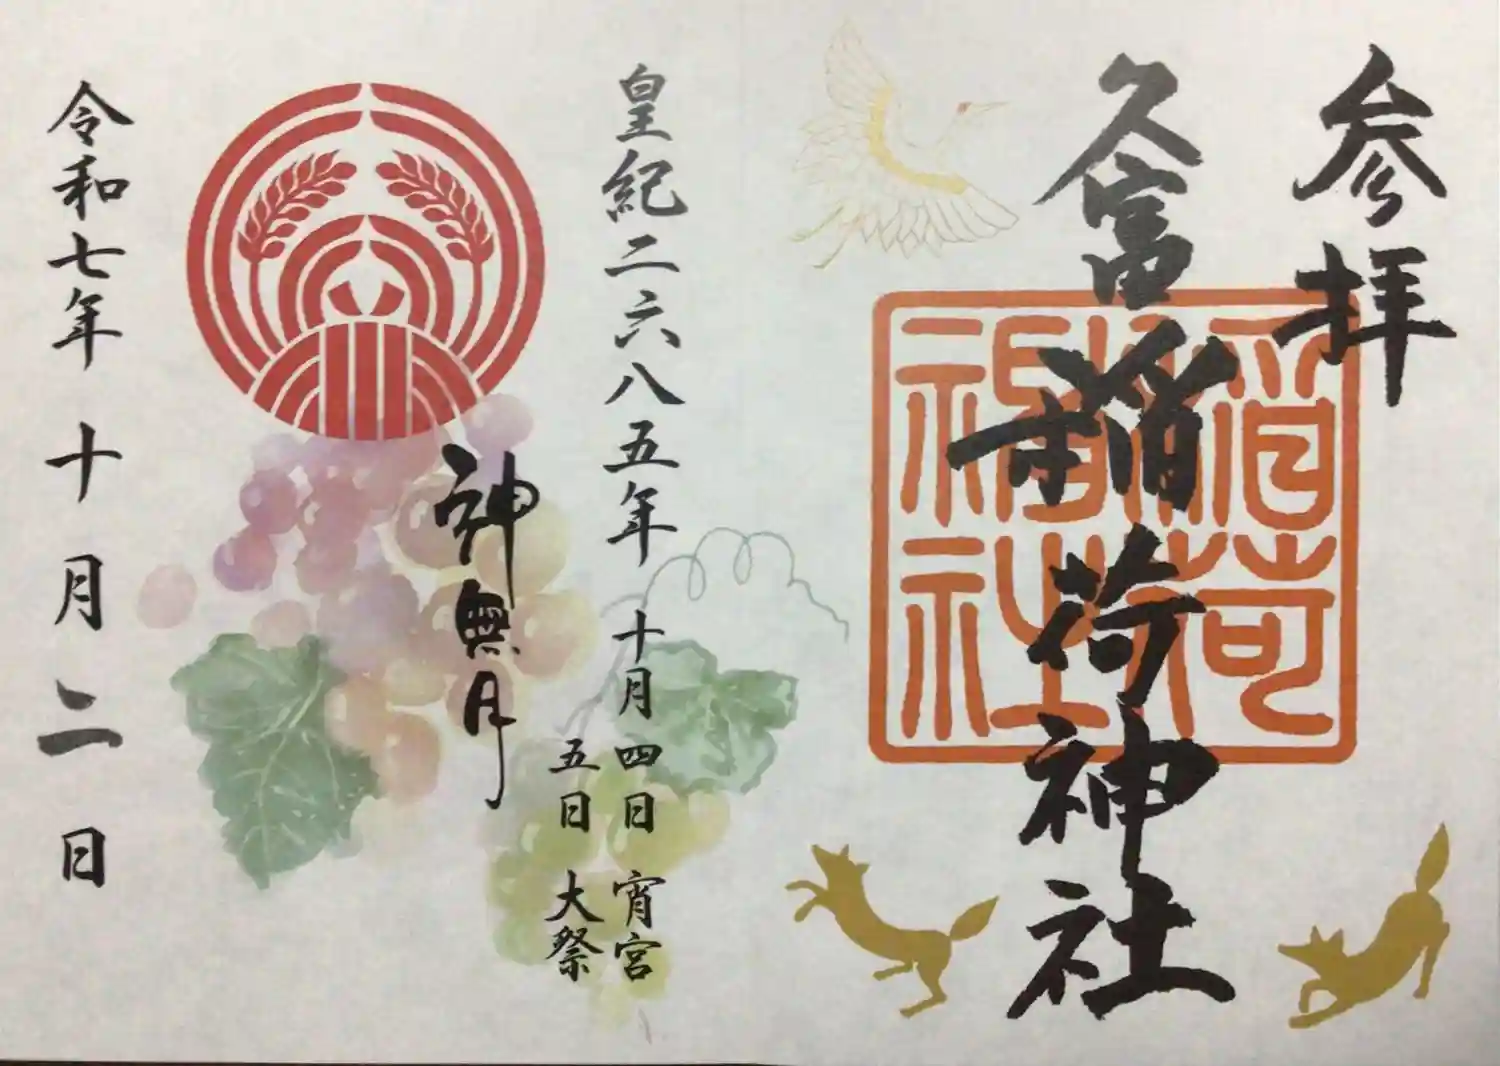 参拝
久富稲荷神社
稲荷
神社
皇紀二六八五年 十月 四日 宵宮
五日 大祭
神無月
令和七年 十月 二日